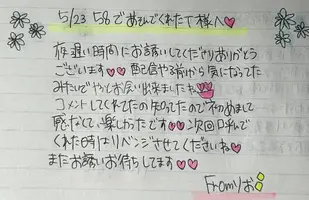 5/23 58であそんでくれたT様へ♡
夜遅い時間にお誘いしてくださりありがとう
ございます♡♡ 配信や3前から気になってた
みたいでやっとお会い出来ましたね
コメントしてくれてたの知ってたので初めまして
感なくて、楽しかったです♡♡次回も呼んで
くれた時はリベンジさせてくださいね♡
またお誘いお待ちしてます♡♡
Fromりお